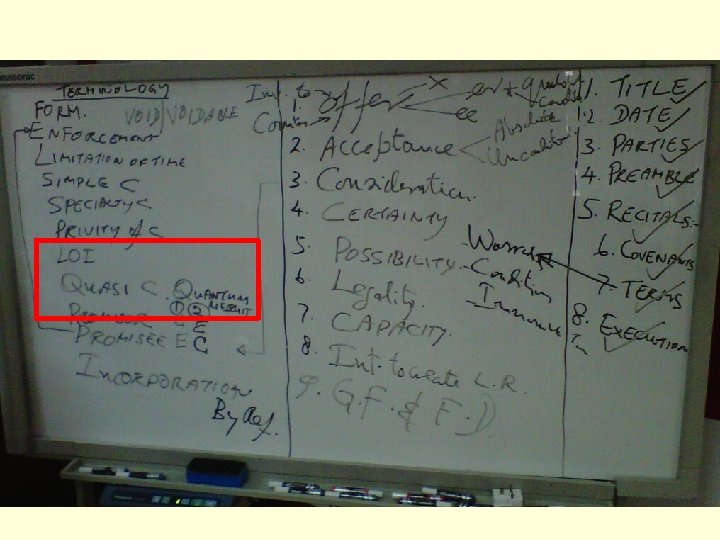 Panasonic
TERMINOLOGY
FORM.
VOID/VOIDABLE
ENFORCEMENT
LIMITATION OF TIME
SIMPLE C
SPECIALTY C.
PRIVITY of C
LOI
QUASI C. QUANTUM
MERUIT
PROMISOR
PROMISEE E C
INCORPORATION
By Ref.
Inv. to
1. Offer X
ee
Absolute
2. Acceptance
3. Consideration.
4. CERTAINTY
5. POSSIBILITY
6. Legality.
7. CAPACITY.
8. Int. to create L.R.
9. G.F. & F.D
Condition
1. TITLE
2. DATE
3. PARTIES
4. PREAMBLE
5. RECITALS
6. COVENANTS
7. TERMS
8. EXECUTION